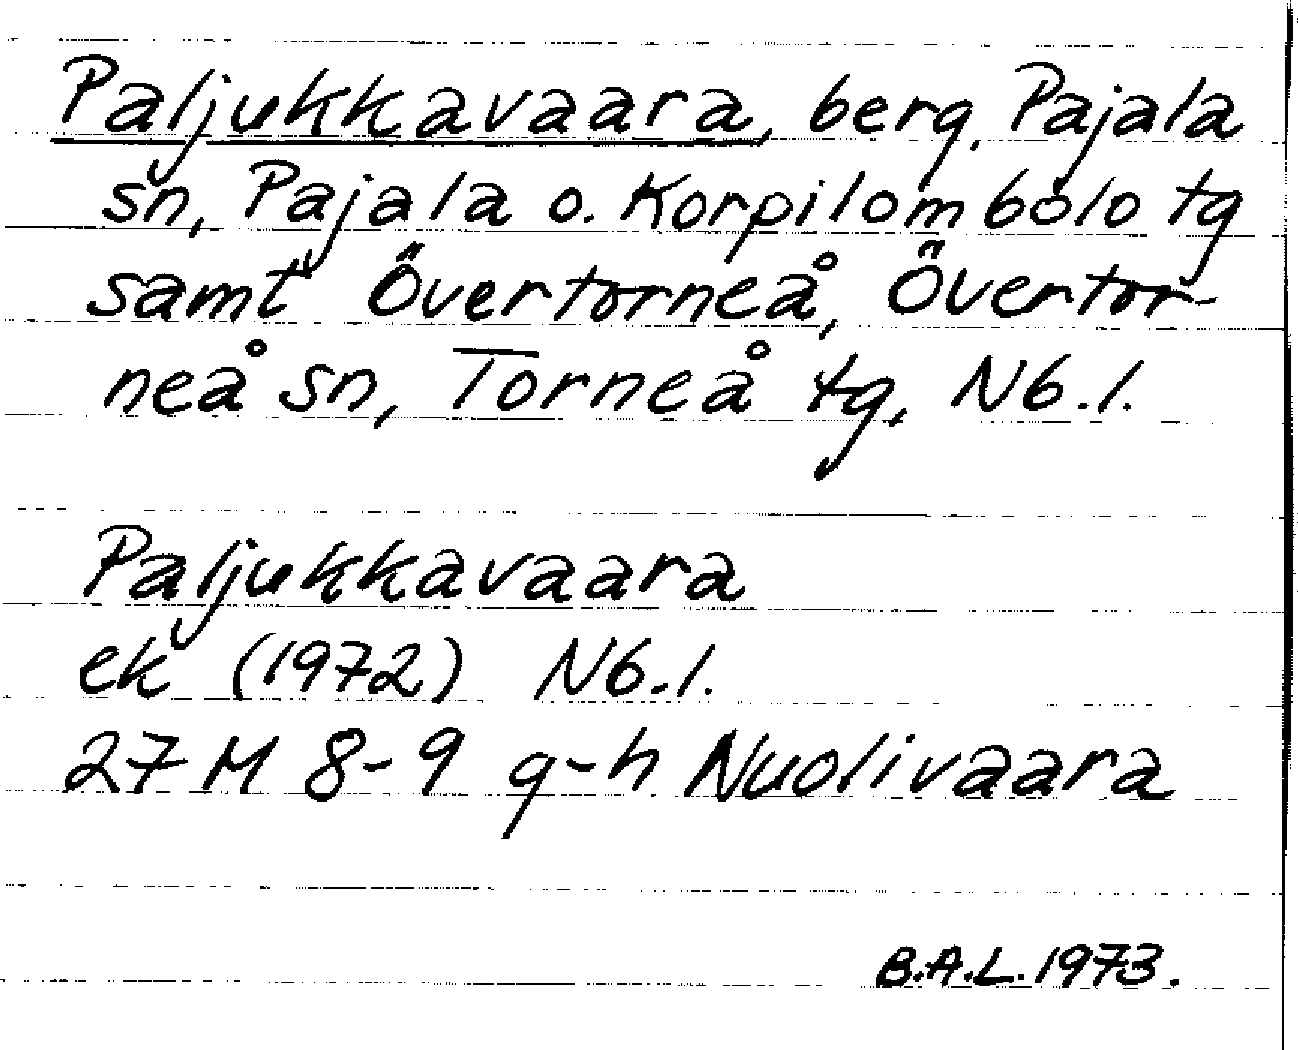 Paljukkavaara, berg, Pajala
sn, Pajala o. Korpilombolo tg
samt Övertorneå, Övertor-
neå sn, Torneå tg, Nb.l.
Paljukkavaara
ek (1972) Nb.l.
27 M 8-9 g-h Nuolivaara
B.A.L. 1973.